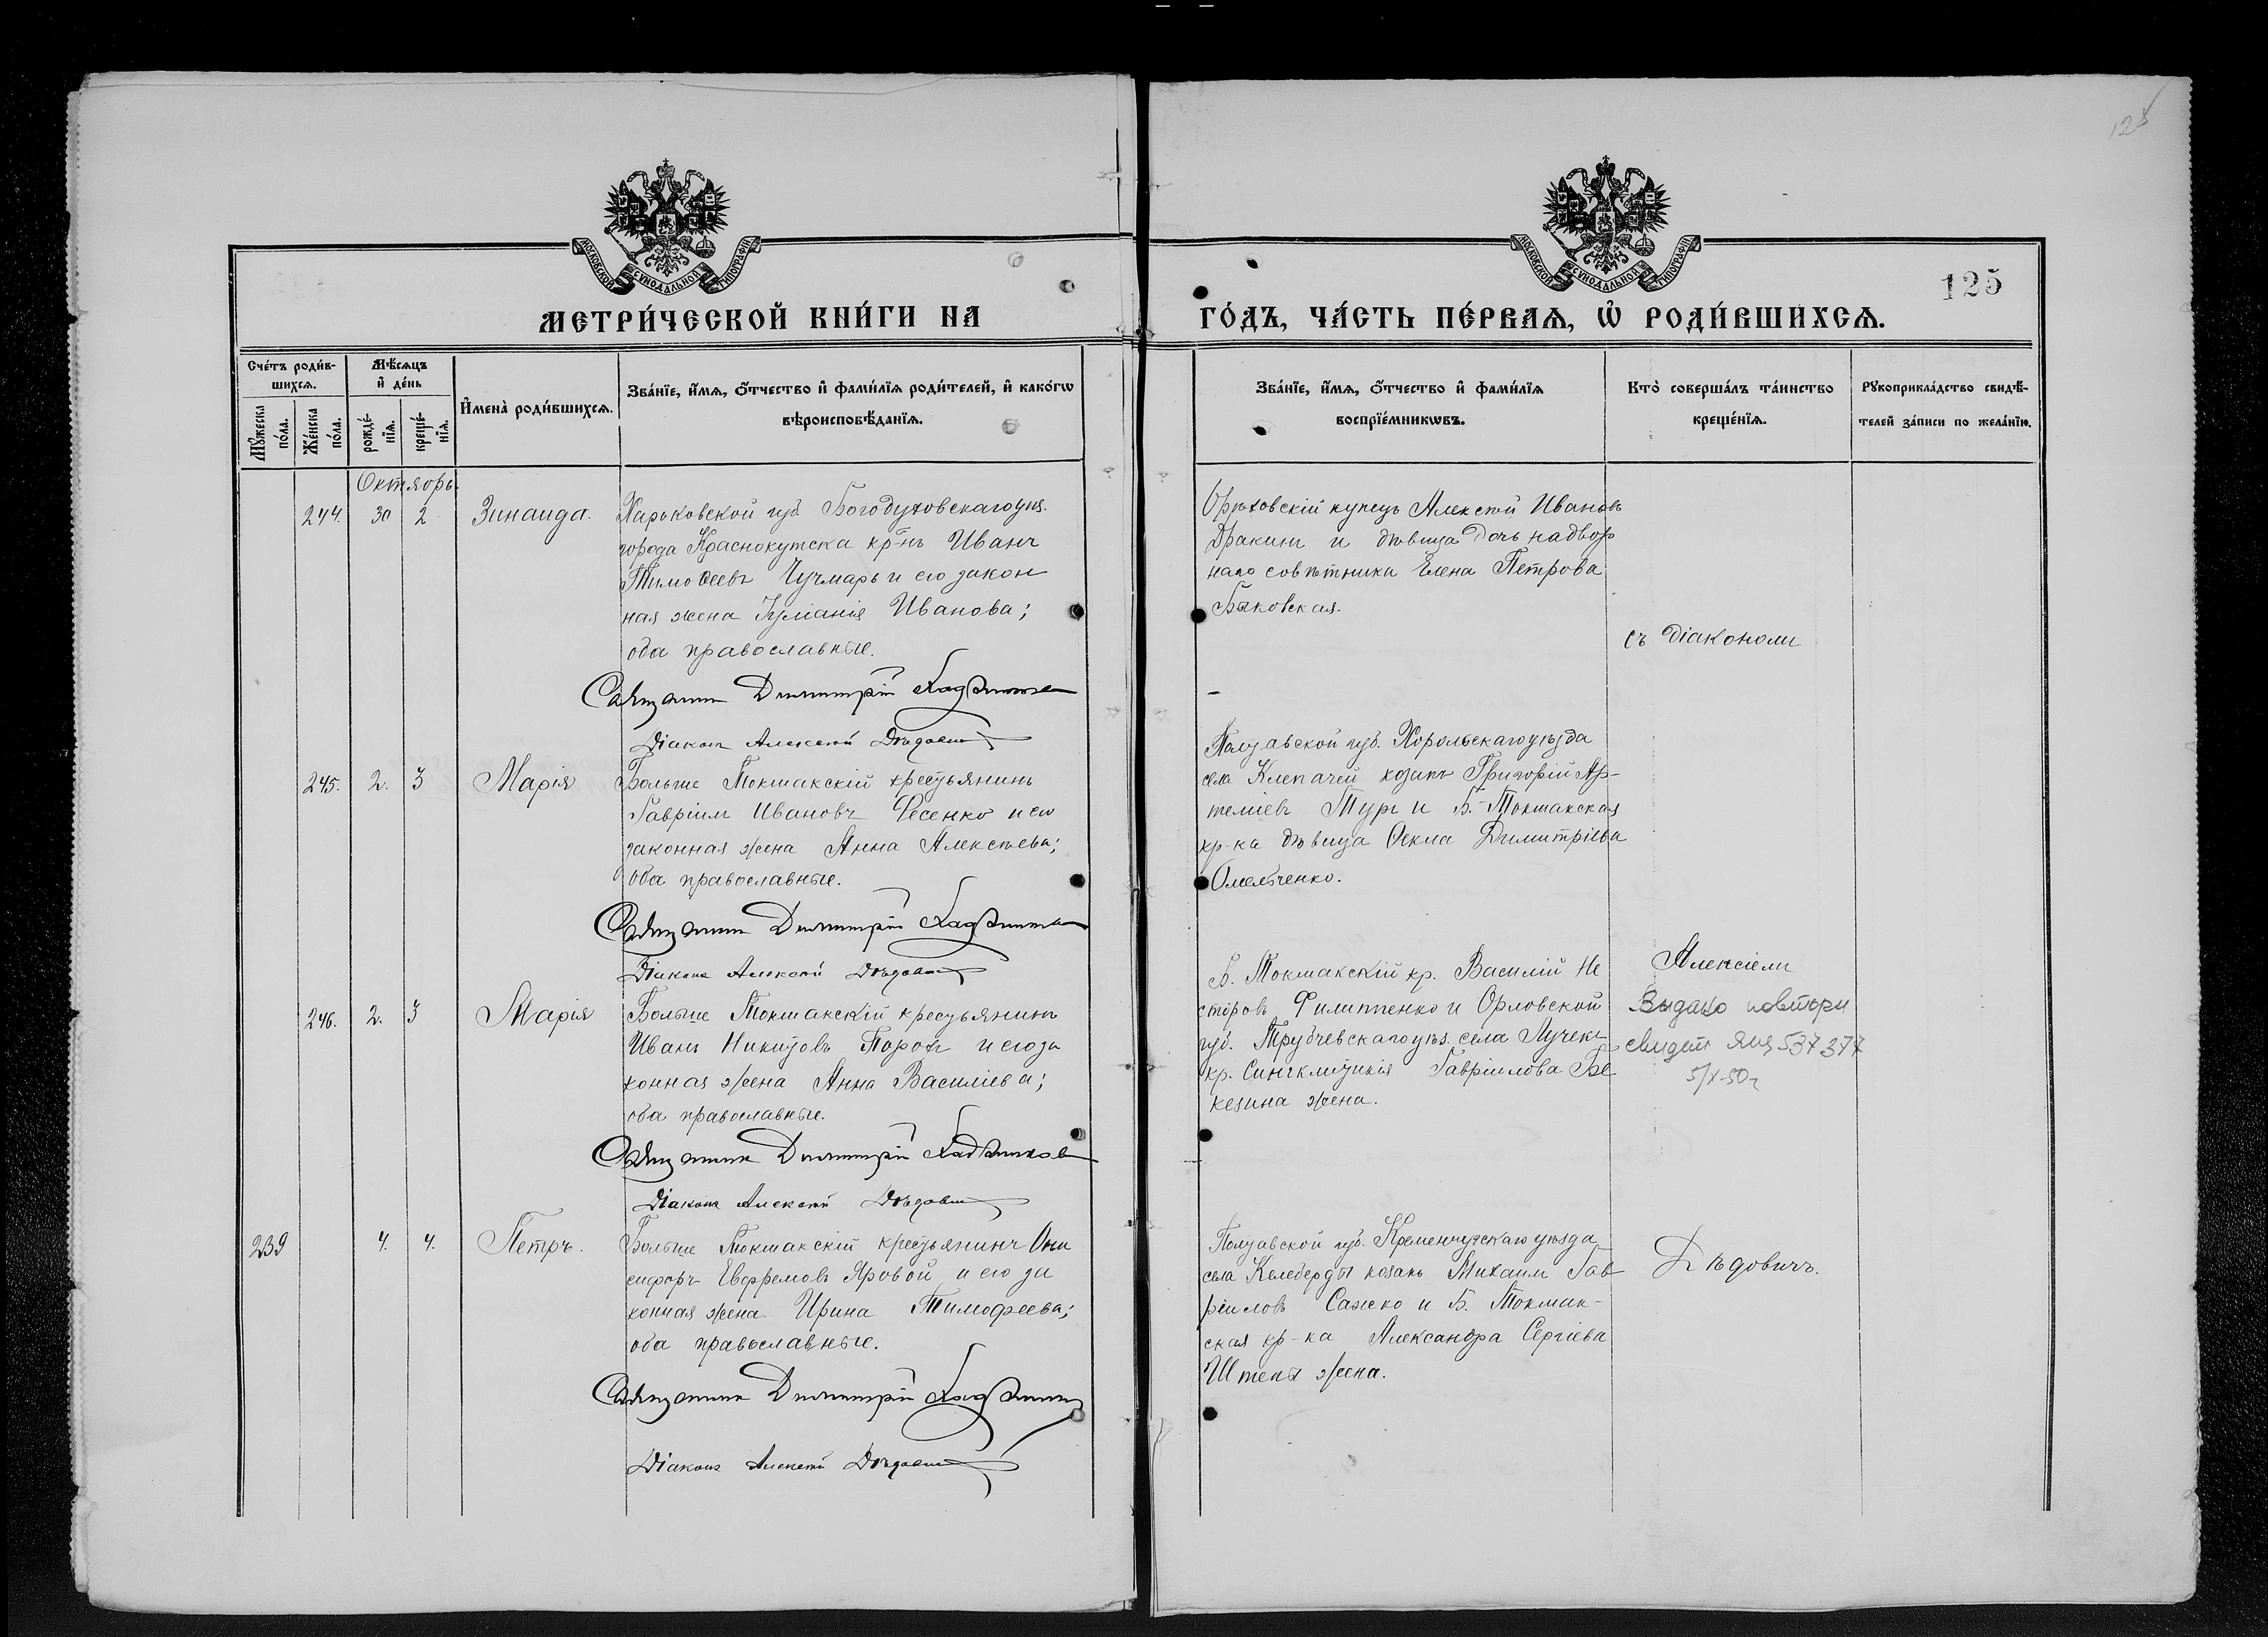 128
МОСКОВСКОЙ СѴНОДАЛЬНОЙ ТИПОГРАФІИ
МОСКОВСКОЙ СѴНОДАЛЬНОЙ ТИПОГРАФІИ
125
МЕТРИ́ЧЕСКОЙ КНИ́ГИ НА
ГО́ДЪ, ЧА́СТЬ ПЕ́РВАЯ, Ѡ҆ РОДИ́ВШИХСѦ.
Сче́тъ роди́в-
шихсѧ.
Мꙋ́жеска по́ла.
Же́нска по́ла.
Мѣ́сѧцъ
и҆ де́нь
рожде́-
нїѧ.
креще́-
нїѧ.
И҆мена̀ роди́вшихсѧ.
Зва́нїе, и҆́мѧ, ѻ҆́тчество и҆ фами́лїѧ роди́телей, и҆ како́гѡ
вѣроисповѣ́данїѧ.
Зва́нїе, и҆́мѧ, ѻ҆́тчество и҆ фами́лїѧ
воспрїе́мникѡвъ.
Кто̀ соверша́лъ та́инство
креще́нїѧ.
Рꙋкоприкла́дство свидѣ́-
телей за́писи по жела́нїю.
Октябрь.
244. 30 2 Зинаида.
Харьковской губ. Богодуховскаго уѣз.
города Краснокутска кр-нъ Иванъ
Тимоѳеевъ Чучмарь и его закон
ная жена Іуліанія Иванова;
оба православные.
Священник Димитрій
Діаконъ Алексѣй Дѣдович
Орѣховскій купецъ Алексѣй Ивановъ
Дракинъ и дѣвица дочь надвор
наго совѣтника Елена Петрова
Быковская.
съ діакономъ
245. 2. 3 Марія
Больше Токмакскій крестьянинъ
Гавріилъ Ивановъ Фесенко и его
законная жена Анна Алексѣева;
оба православные.
Священник Димитрій
Діаконъ Алексѣй Дѣдович
Полтавской губ. Хорольскаго уѣзда
села Клепачей козакъ Григорій Ар-
теміевъ Туръ и Б.-Токмакская
кр-ка дѣвица Ѳекла Димитріева
Омельченко.
246. 2. 3 Марія
Больше Токмакскій крестьянинъ
Иванъ Никитовъ и его за
конная жена Анна Василіева;
оба православные.
Священник Димитрій
Діаконъ Алексѣй Дѣдович
Б. Токмакскій кр. Василій Не
сторовъ Филиппенко и Орловской
губ. Трубчевскаго уѣз. села
кр. Гавріилова Бе
кезина жена.
Алексіемъ
Выдано повторн
свидет ЯЩ 537377
5/X-50г
239 4. 4. Петръ.
Больше Токмакскій крестьянинъ Они
сифоръ Евфремовъ Яровой и его за
конная жена Ирина Тимофеева;
оба православные.
Священник Димитрій
Діаконъ Алексѣй Дѣдович
Полтавской губ. Кременчугскаго уѣзда
села Келеберды козакъ Михаилъ Гав
ріиловъ Сажко и Б. Токмак-
ская кр-ка Александра Сергіева
жена.
Дѣдовичъ.